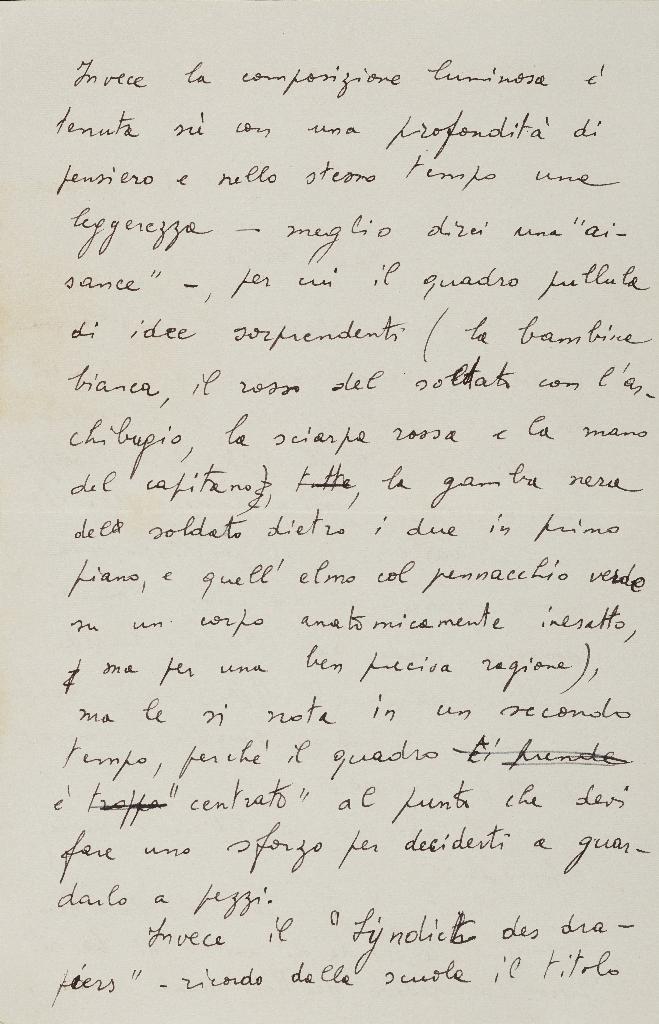 Invece la composizione luminosa é
tenuta sù con una profondità di
pensiero e nello stesso tempo una
leggerezza — meglio direi una "ai-
sance" —, per cui il quadro pullula
di idee sorprendenti (la bambina
bianca, il rosso del soldato con l'ar-
chibugio, la sciarpa rossa e la mano
del capitano, tutte, la gamba nera
del soldato dietro i due in primo
piano, e quell'elmo col pennacchio verde
su un corpo anatomicamente inesatto,
ma per una ben precisa ragione),
ma le si nota in un secondo
tempo, perché il quadro ti prende
é troppo "centrato" al punto che devi
fare uno sforzo per deciderti a guar-
darlo a pezzi.
Invece il "Syndick des dra-
piers" - ricordo dalla scuola il titolo